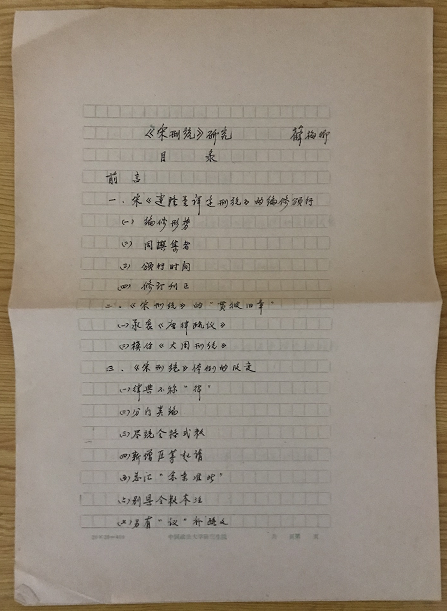 《宋刑统》研究 薛梅卿
目 录
前 言
一、宋《建隆重详定刑统》的编修颁行
(一) 编修形势
(二) 同撰集者
(三) 颁行时间
(四) 修订刊正
二、《宋刑统》的“贯彼旧章”
(一)承袭《唐律疏议》
(二)模仿《大周刑统》
三、《宋刑统》体例的改定
(一)律典不称“律”
(二)分门类编
(三)尽统令格式敕
(四)新增臣等起请
(五)总汇“余条准此”
(六)别具令敕本注
(七)另有“议”
中国政法大学研究生院